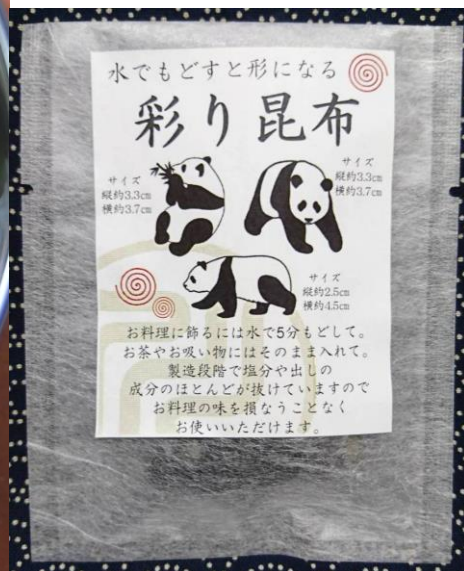 水でもどすと形になる
彩り昆布
サイズ
縦約3.3cm
横約3.7cm
サイズ
縦約3.3cm
横約3.7cm
サイズ
縦約2.5cm
横約4.5cm
お料理に飾るには水で5分もどして。
お茶やお吸い物にはそのまま入れて。
製造段階で塩分や出しの
成分のほとんどが抜けていますので
お料理の味を損なうことなく
お使いいただけます。